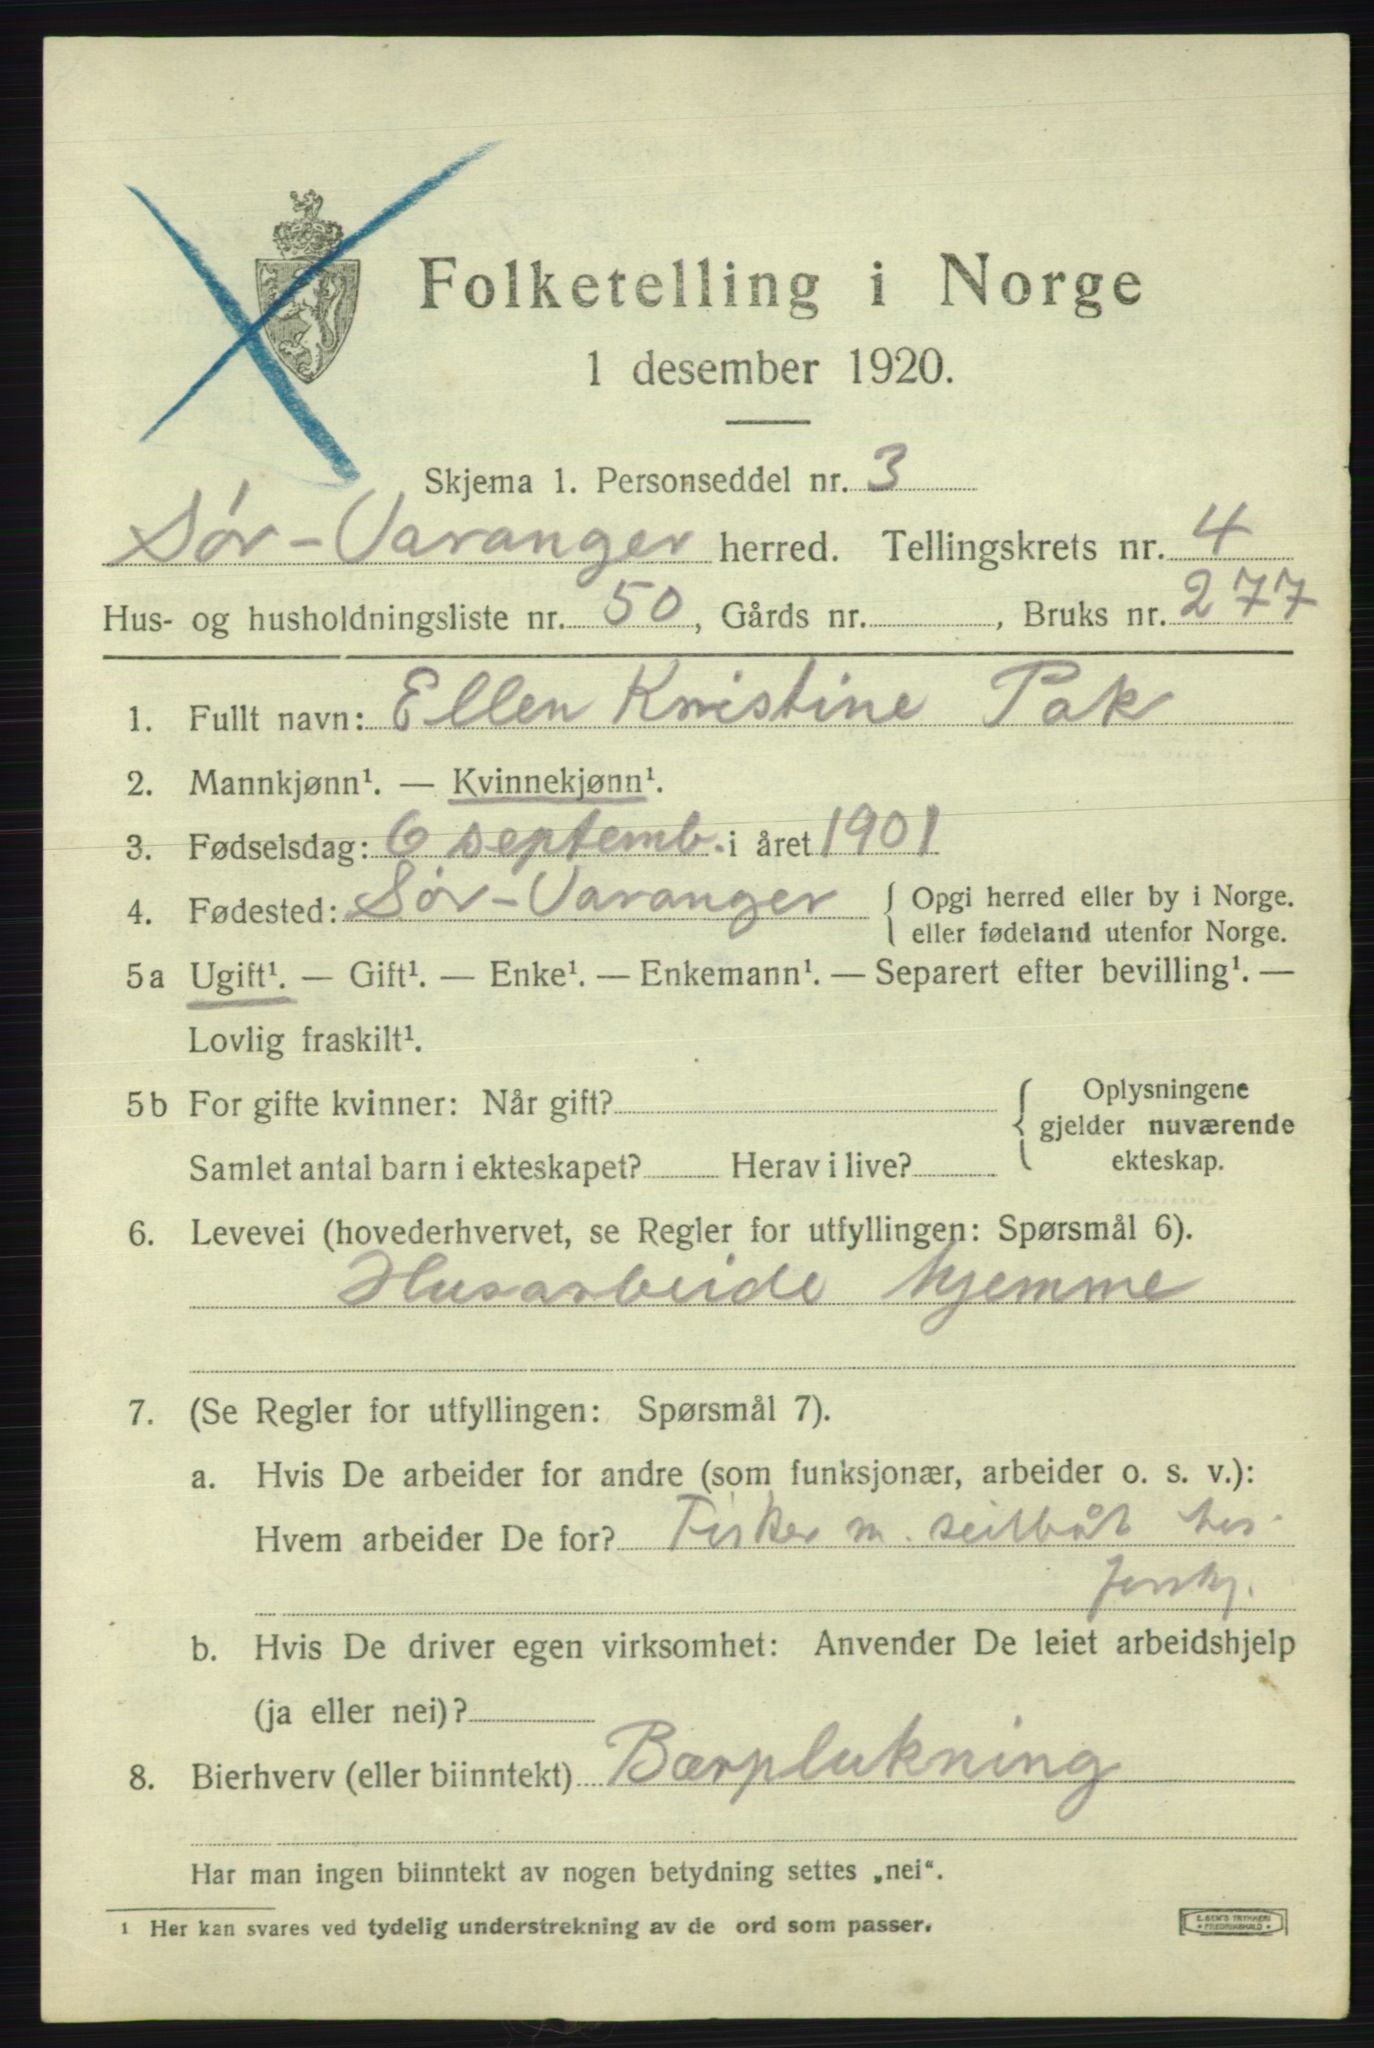 Folketelling i Norge
1 desember 1920.
Skjema 1. Personseddel nr. 3
Sør-Varanger herred. Tellingskrets nr. 4
Hus- og husholdningsliste nr. 50, Gårds nr. , Bruks nr. 277
1. Fullt navn: Ellen Kristine Pak
2. Mannkjønn¹. — Kvinnekjønn¹.
3. Fødselsdag: 6 septemb. i året 1901
4. Fødested: Sør-Varanger { Opgi herred eller by i Norge.
eller fødeland utenfor Norge.
5a Ugift¹. — Gift¹. — Enke¹. — Enkemann¹. — Separert efter bevilling¹. —
Lovlig fraskilt¹.
5b For gifte kvinner: Når gift? { Oplysningene
gjelder nuværende
Samlet antal barn i ekteskapet? Herav i live? ekteskap.
6. Levevei (hovederhvervet, se Regler for utfyllingen: Spørsmål 6).
Husarbeide hjemme
7. (Se Regler for utfyllingen: Spørsmål 7).
a. Hvis De arbeider for andre (som funksjonær, arbeider o. s. v.):
Hvem arbeider De for? Fisker m. seilbåt
b. Hvis De driver egen virksomhet: Anvender De leiet arbeidshjelp
(ja eller nei)?
8. Bierhverv (eller biinntekt) Bærplukning
Har man ingen biinntekt av nogen betydning settes „nei“.
1 Her kan svares ved tydelig understrekning av de ord som passer.
E. SEM'S TRYKKERI
• FREDRIKSHALD •